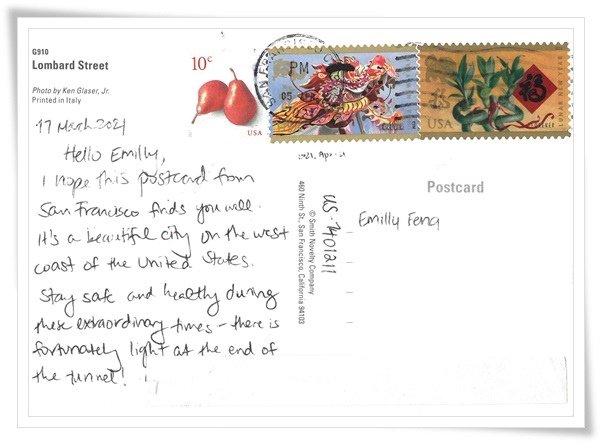 G910
Lombard Street
Photo by Ken Glaser, Jr.
Printed in Italy
17 March 2021
Hello Emilly,
I hope this postcard from
San Francisco finds you well.
It's a beautiful city on the west
coast of the United States.
Stay safe and healthy during
these extraordinary times – there is
fortunately light at the end of
the tunnel!
10¢
USA
SAN FRANCISCO
PM
05
USA
福
LUNAR NEW YEAR
FOREVER
Postcard
US-7401211
Emilly Feng
© Smith Novelty Company
460 Ninth St., San Francisco, California 94103